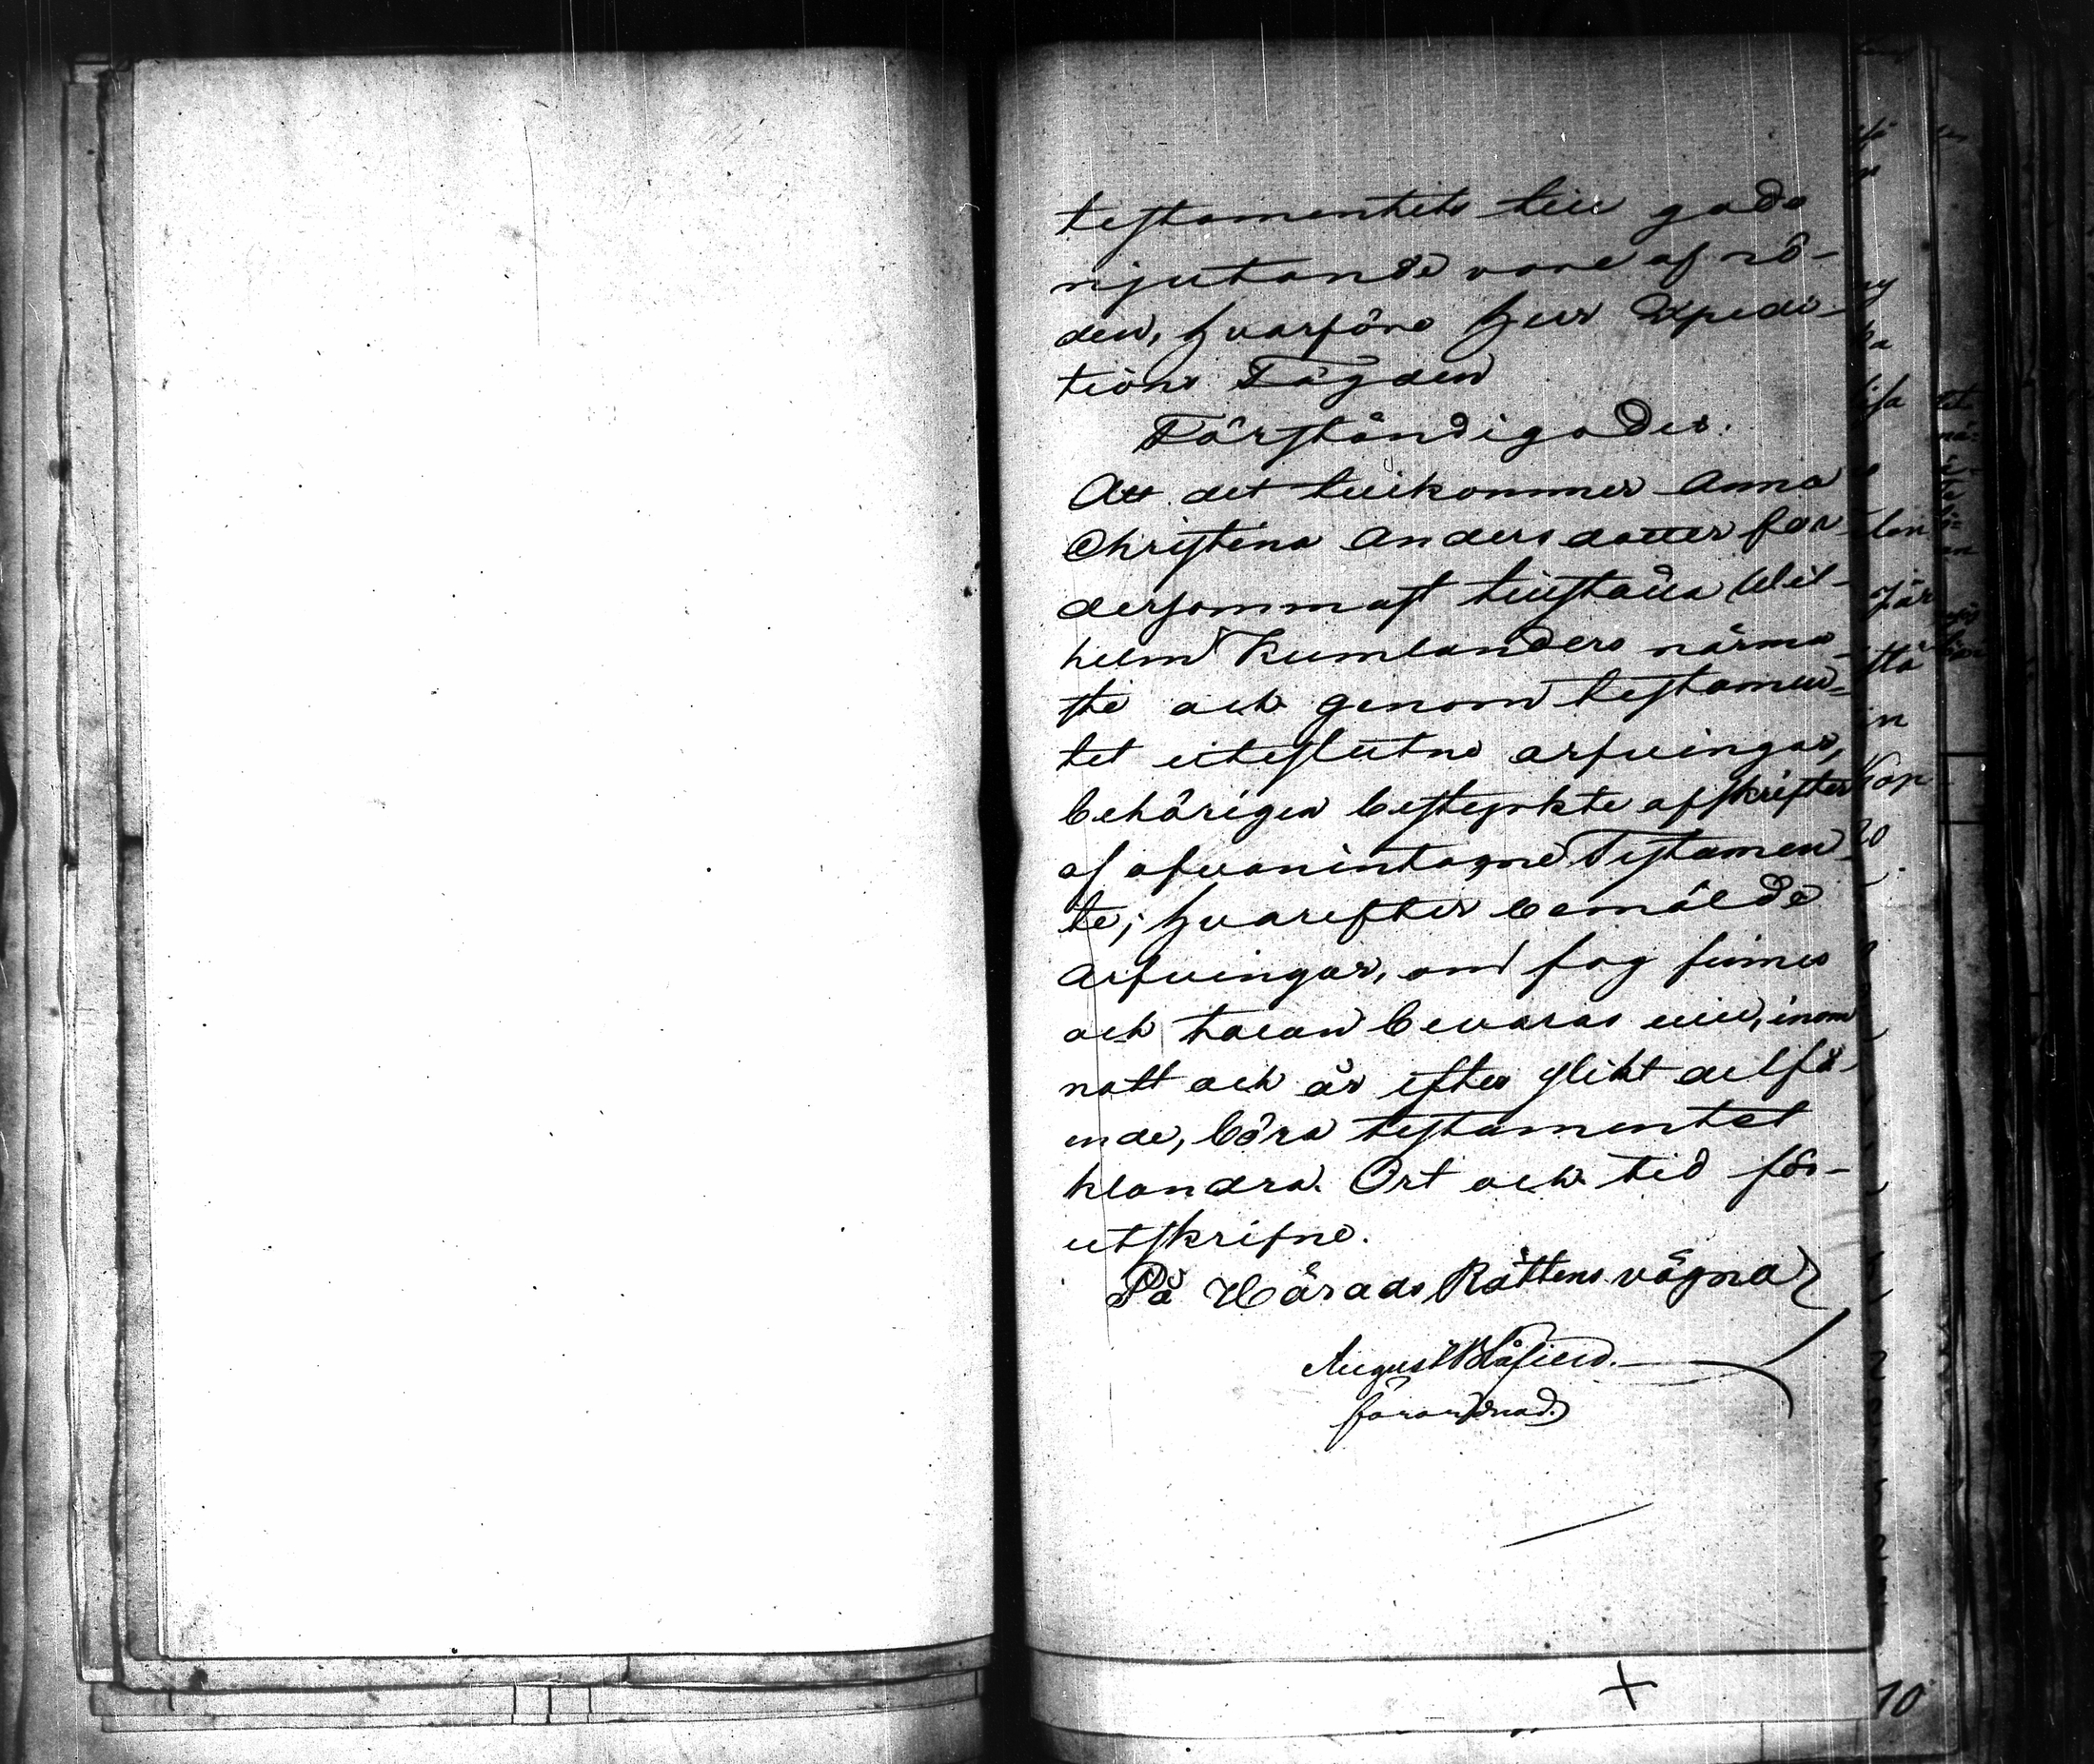 testamentets till godo
njutande vore af nö-
den, hvarföre hur Expedi-
tions Tägden
Förständigades.
Att det tillkommer Anna
Christina Andersdotter for
dersommast tillställa Wil-
helm Kumlanders närma-
ste och genom testamen-
tet uteslutne arfvingar,
behörigen bestyrkte afskrifter
af ofvanintagne Testamen-
te; hvarefter bemälde
arfvingar, om fog finnes
och talan bevaras vill, inom
natt och år efter slikt delfå-
ende, böra testamentet
klandra. Ort och tid för-
utskrifne.
På Härads Rättens vägna
August Blåfield.
förordnad.
10